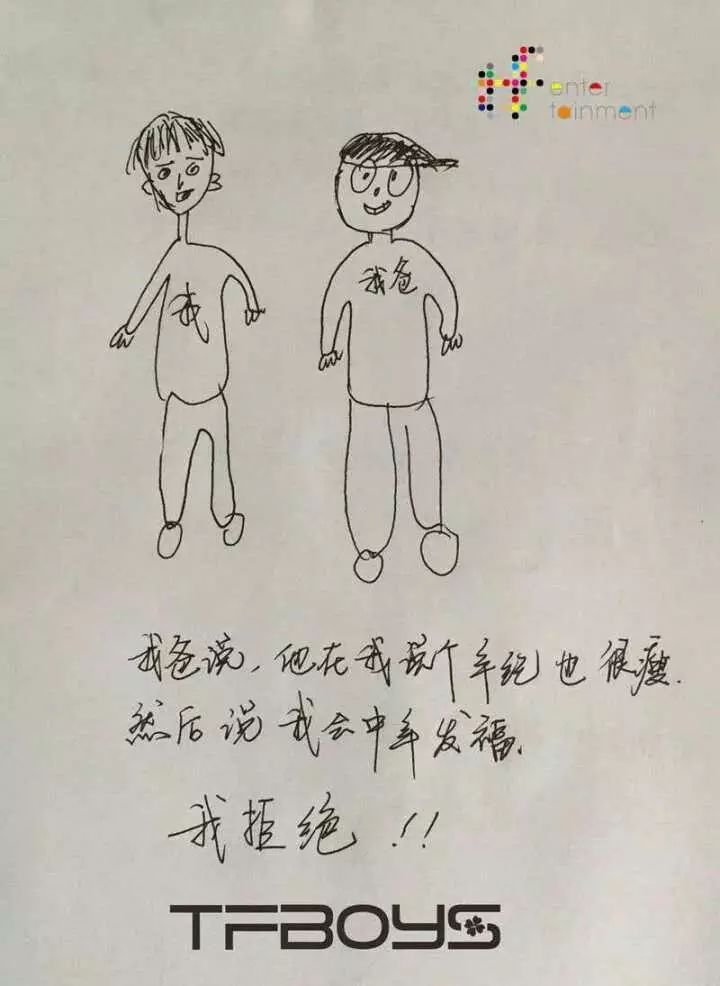 enter
tainment
我 我爸
我爸说，他在我这个年纪也很瘦.
然后说我会中年发福.
我拒绝!!
TFBOYS